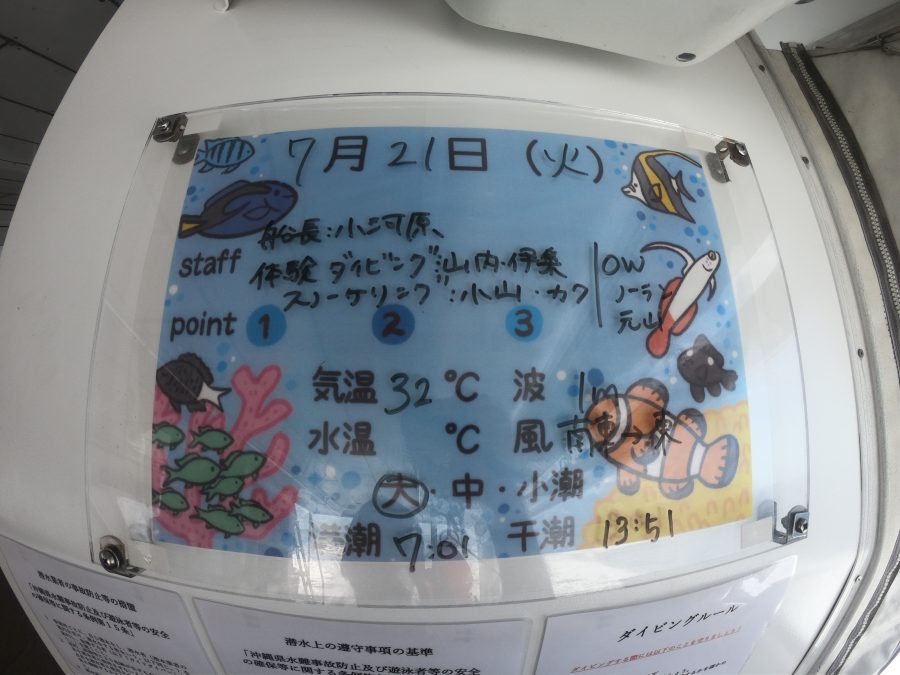 7月21日 (火)
船長:小河原、
staff 体験 ダイビング:山内・伊集 OW
スノーケリング:小山・カク ノーラン
元山
point 1 2 3
気温 32 ℃ 波 1m
水温 ℃ 風 南東→東
大・中・小潮
満潮 7:01 干潮 13:51
潜水業者の事故防止等の措置
「沖縄県水難事故防止及び遊泳者等の安全
の確保等に関する条例第15条」
潜水上の遵守事項の基準
「沖縄県水難事故防止及び遊泳者等の安全
の確保等に関する条例
ダイビングルール
ダイビングする際には以下のことを守りましょう!